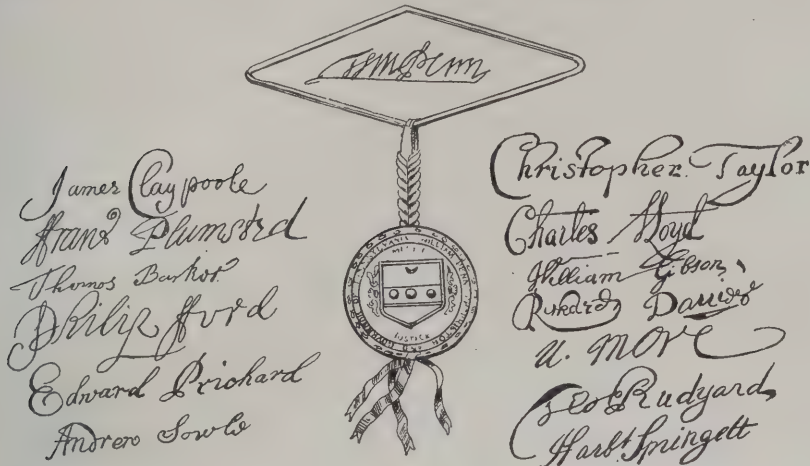 Wm Penn
James Claypoole
ffranc Plumsted
Thomas Barker
Philip fford
Edward Prichard
Andrew Sowle
MERCY
JUSTICE
Christopher Taylor
Charles Lloyd
William Gibson
Richard Davies
N. More
Tho Rudyard
Harbt Springett